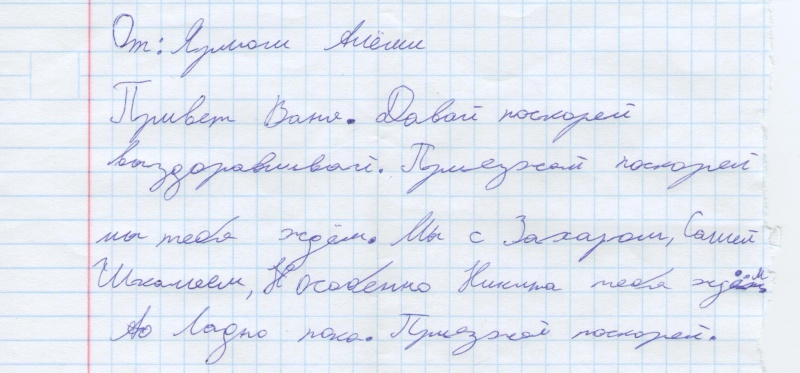 От: Ярмоги Алёши
Привет Ваня. Давай поскорей
выздоравливай. Приезжай поскорей
мы тебя ждём. Мы с Захаром, Сашей
особенно Никита тебя ждём.
Ладно пока. Приезжай поскорей.